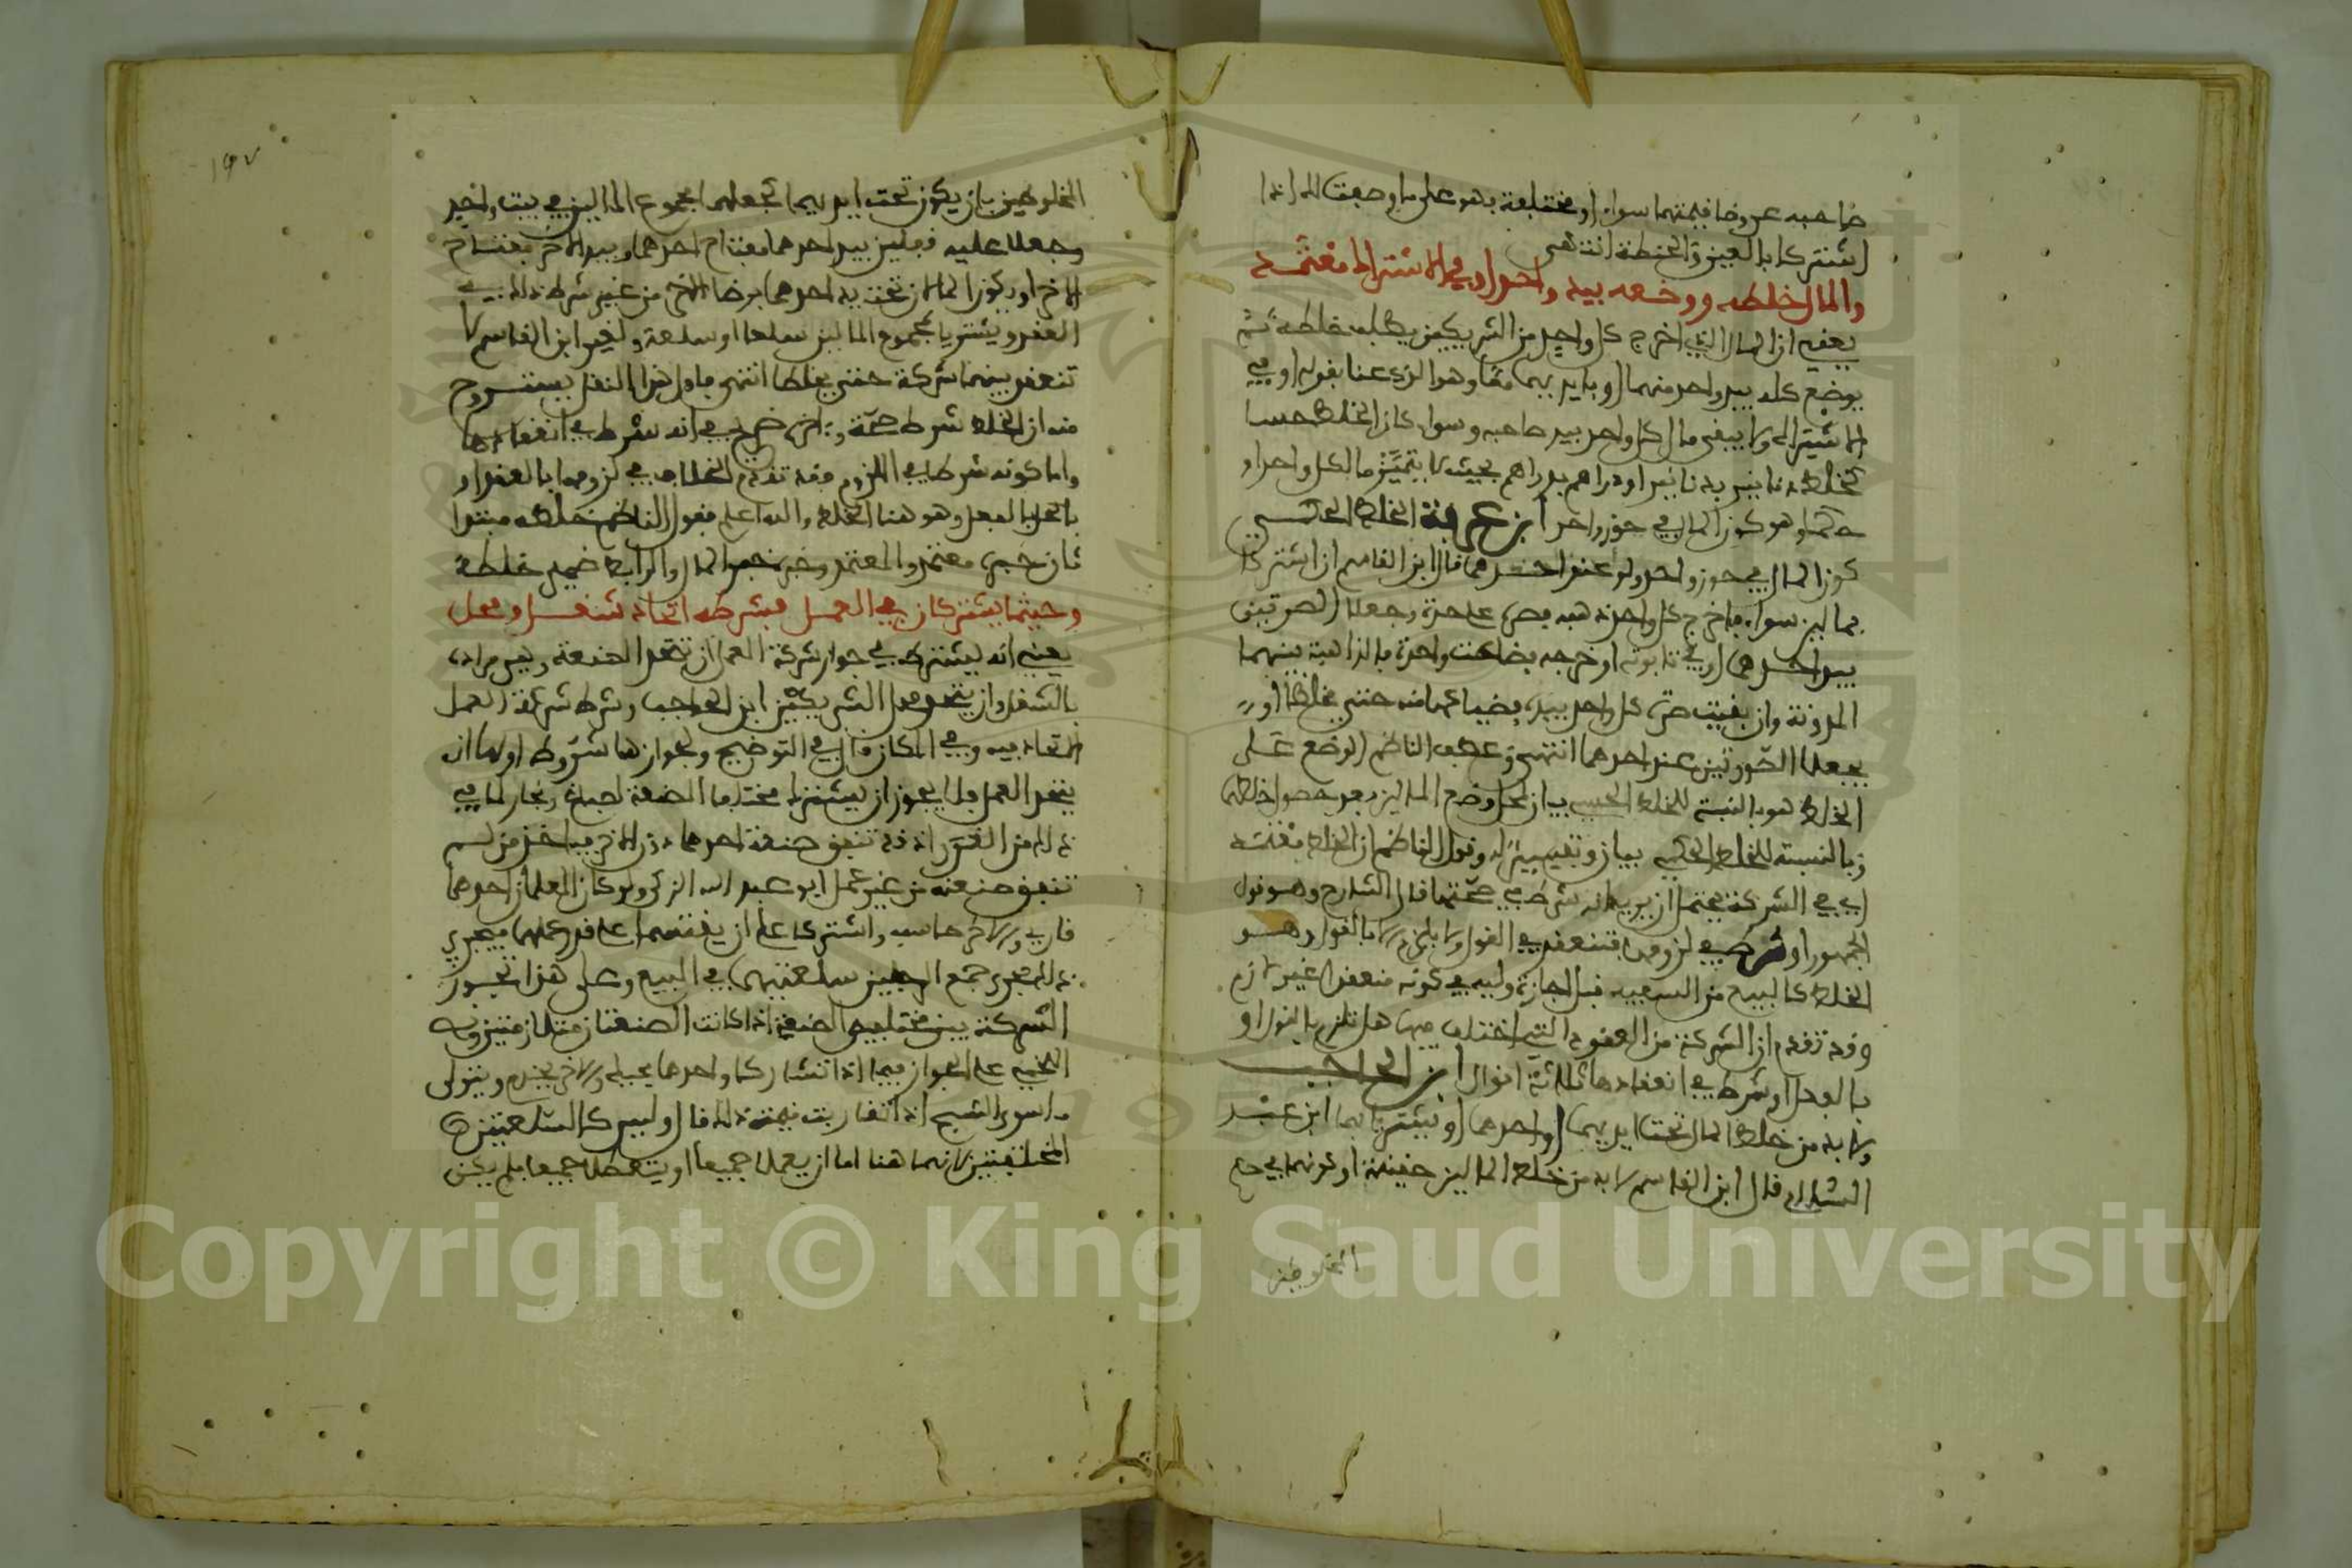 صاحبه عروضا قيمتهما سواء او مختلفة فهو على ما وصفت لك اذا
اشتركا بالعين والحنطة انتهى
والمال خلطه ووضعه بيد واحد او في الاشتراك معتمد
يعني ان المال الذي اخرج كل واحد من الشريكين يطلب خلطه ثم
يوضع كله بيد واحد منهما او بايديهما معا وهو الذي عنا بقوله او في
الاشتراك ولا يبقى مال كل واحد بيد صاحبه وسواء كان الخلط حسا
كخلط دنانير بدنانير او دراهم بدراهم بحيث لا يتميز مال كل واحد او
حكما وهو كون المال في حوز واحد ابن عرفة الخلط الحكمي
كون المال في حوز واحد ولو عند احدهما قال ابن القاسم ان اشتركا
بمالين سواء فاخرج كل واحد ذهبه فصر على حدة وجعلا الصرتين
بيد احدهما او في تابوته او خرجه فضاعت واحدة فالذاهبة بينهما
المدونة وان بقيت صرة كل واحد بيده فضياعها منه حتى يخلطا او
يجعلا الصرتين عند احدهما انتهى وعطف الناظم الوضع على
الخلط هو بالنسبة للخلط الحسي بيان لمحل وضع المالين بعد حصول خلطهما
وبالنسبة للخلط الحكمي بيان وتفسير له وقول الناظم ان الخلط معتمد
اي في الشركة يحتمل ان يريد انه شرط في صحتها قال الشارح وهو قول
الجمهور او شرط في لزومها فتنعقد في القول ولا يلزم الا بالقول وهو
الخلط كالبيع من السفيه قبل اجازة وليه في كونه منعقدا غير لازم
وقد تقدم ان الشركة من العقود التي اختلف فيها هل تلزم بالقول او
بالعمل او شرط في انعقادها ثلاثة اقوال ابن الحاجب
ولا بد من خلط المال تحت ايديهما او احدهما او يشتريا بهما ابن عبد
السلام قال ابن القاسم لا بد من خلط المالين حقيقة او كونهما في حكم
المخلوطين
١٩٧
المخلوطين بان يكون تحت ايديهما بجعلهما مجموع المالين في بيت واحد
وجعلا عليه قفلين بيد احدهما مفتاح احدهما وبيد الاخر مفتاح
الاخر او يكون المالان تحت يد احدهما برضا الاخر من غير شرط ذلك في
العقد ويشتريا بمجموع المالين سلعا او سلعة ولغير ابن القاسم لا
تنعقد بينهما شركة حتى يخلطا انتهى فاول هذا النقل يستروح
منه ان الخلط شرط صحة واخره صرح في انه شرط في انعقادها
واما كونه شرطا في اللزوم فقد تقدم الخلاف في لزومها بالعقد او
بالعمل والعمل هو هنا الخلط والله اعلم فقول الناظم خلطه مبتدا
ثان خبره معتمد والمعتمد وخبره خبر المال والرابط ضمير خلطه
وحيثما يشتركان في العمل فشرطه اتحاد شغل ومحل
يعني انه يشترط في جواز شركة العمل ان تتحد الصنعة وهي مراده
بالشغل وان يتحد محل الشريكين ابن الحاجب وشرط شركة العمل
الاتحاد فيه وفي المكان قال في التوضيح ولجوازها شروط اولها ان
يتحد العمل فلا يجوز ان يشترك مختلفا الصنعة كصباغ ونجار لما في
ذلك من الغرر اذ قد تنفق صنعة احدهما دون الاخر فياخذ من لم
تنفق صنعته من غير عمل ابو عبد الله الزكي ولو كان المعلمان احدهما
قارئ والاخر حاسب واشتركا على ان يقتسما على قدر عملهما فيجري
ذلك مجرى جمع الرجلين سلعتيهما في البيع وعلى هذا تجوز
الشركة بين مختلفي الصنعة اذا كانت الصنعتان متلازمتين ونص
اللخمي على الجواز فيما اذا تشاركا واحدهما يحيك والاخر يخدم ويتولى
ما سوى النسج اذا تقاربت قيمة ذلك قال وليس كالسلعتين
المختلفتين لانهما هنا اما ان يعملا جميعا او يتعطلا جميعا فلم يكن
Copyright © King Saud University